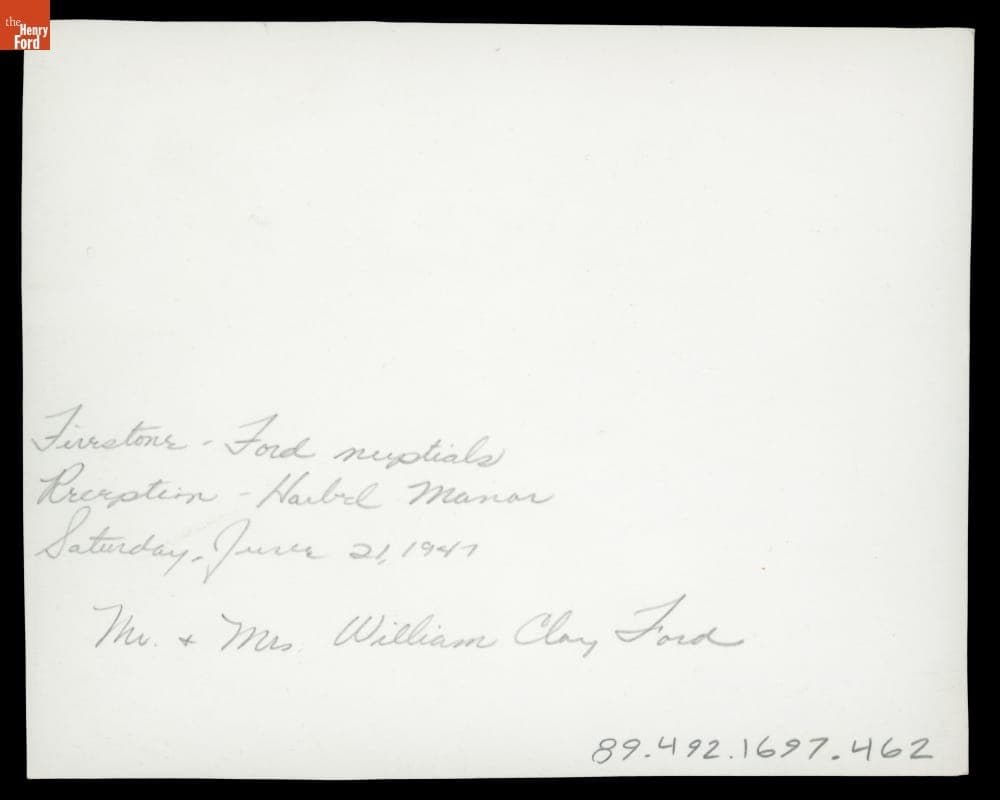 the
Henry
Ford
Firestone - Ford nuptials
Reception - Harbel Manor
Saturday, June 21, 1947
Mr. + Mrs. William Clay Ford
89.492.1697.462